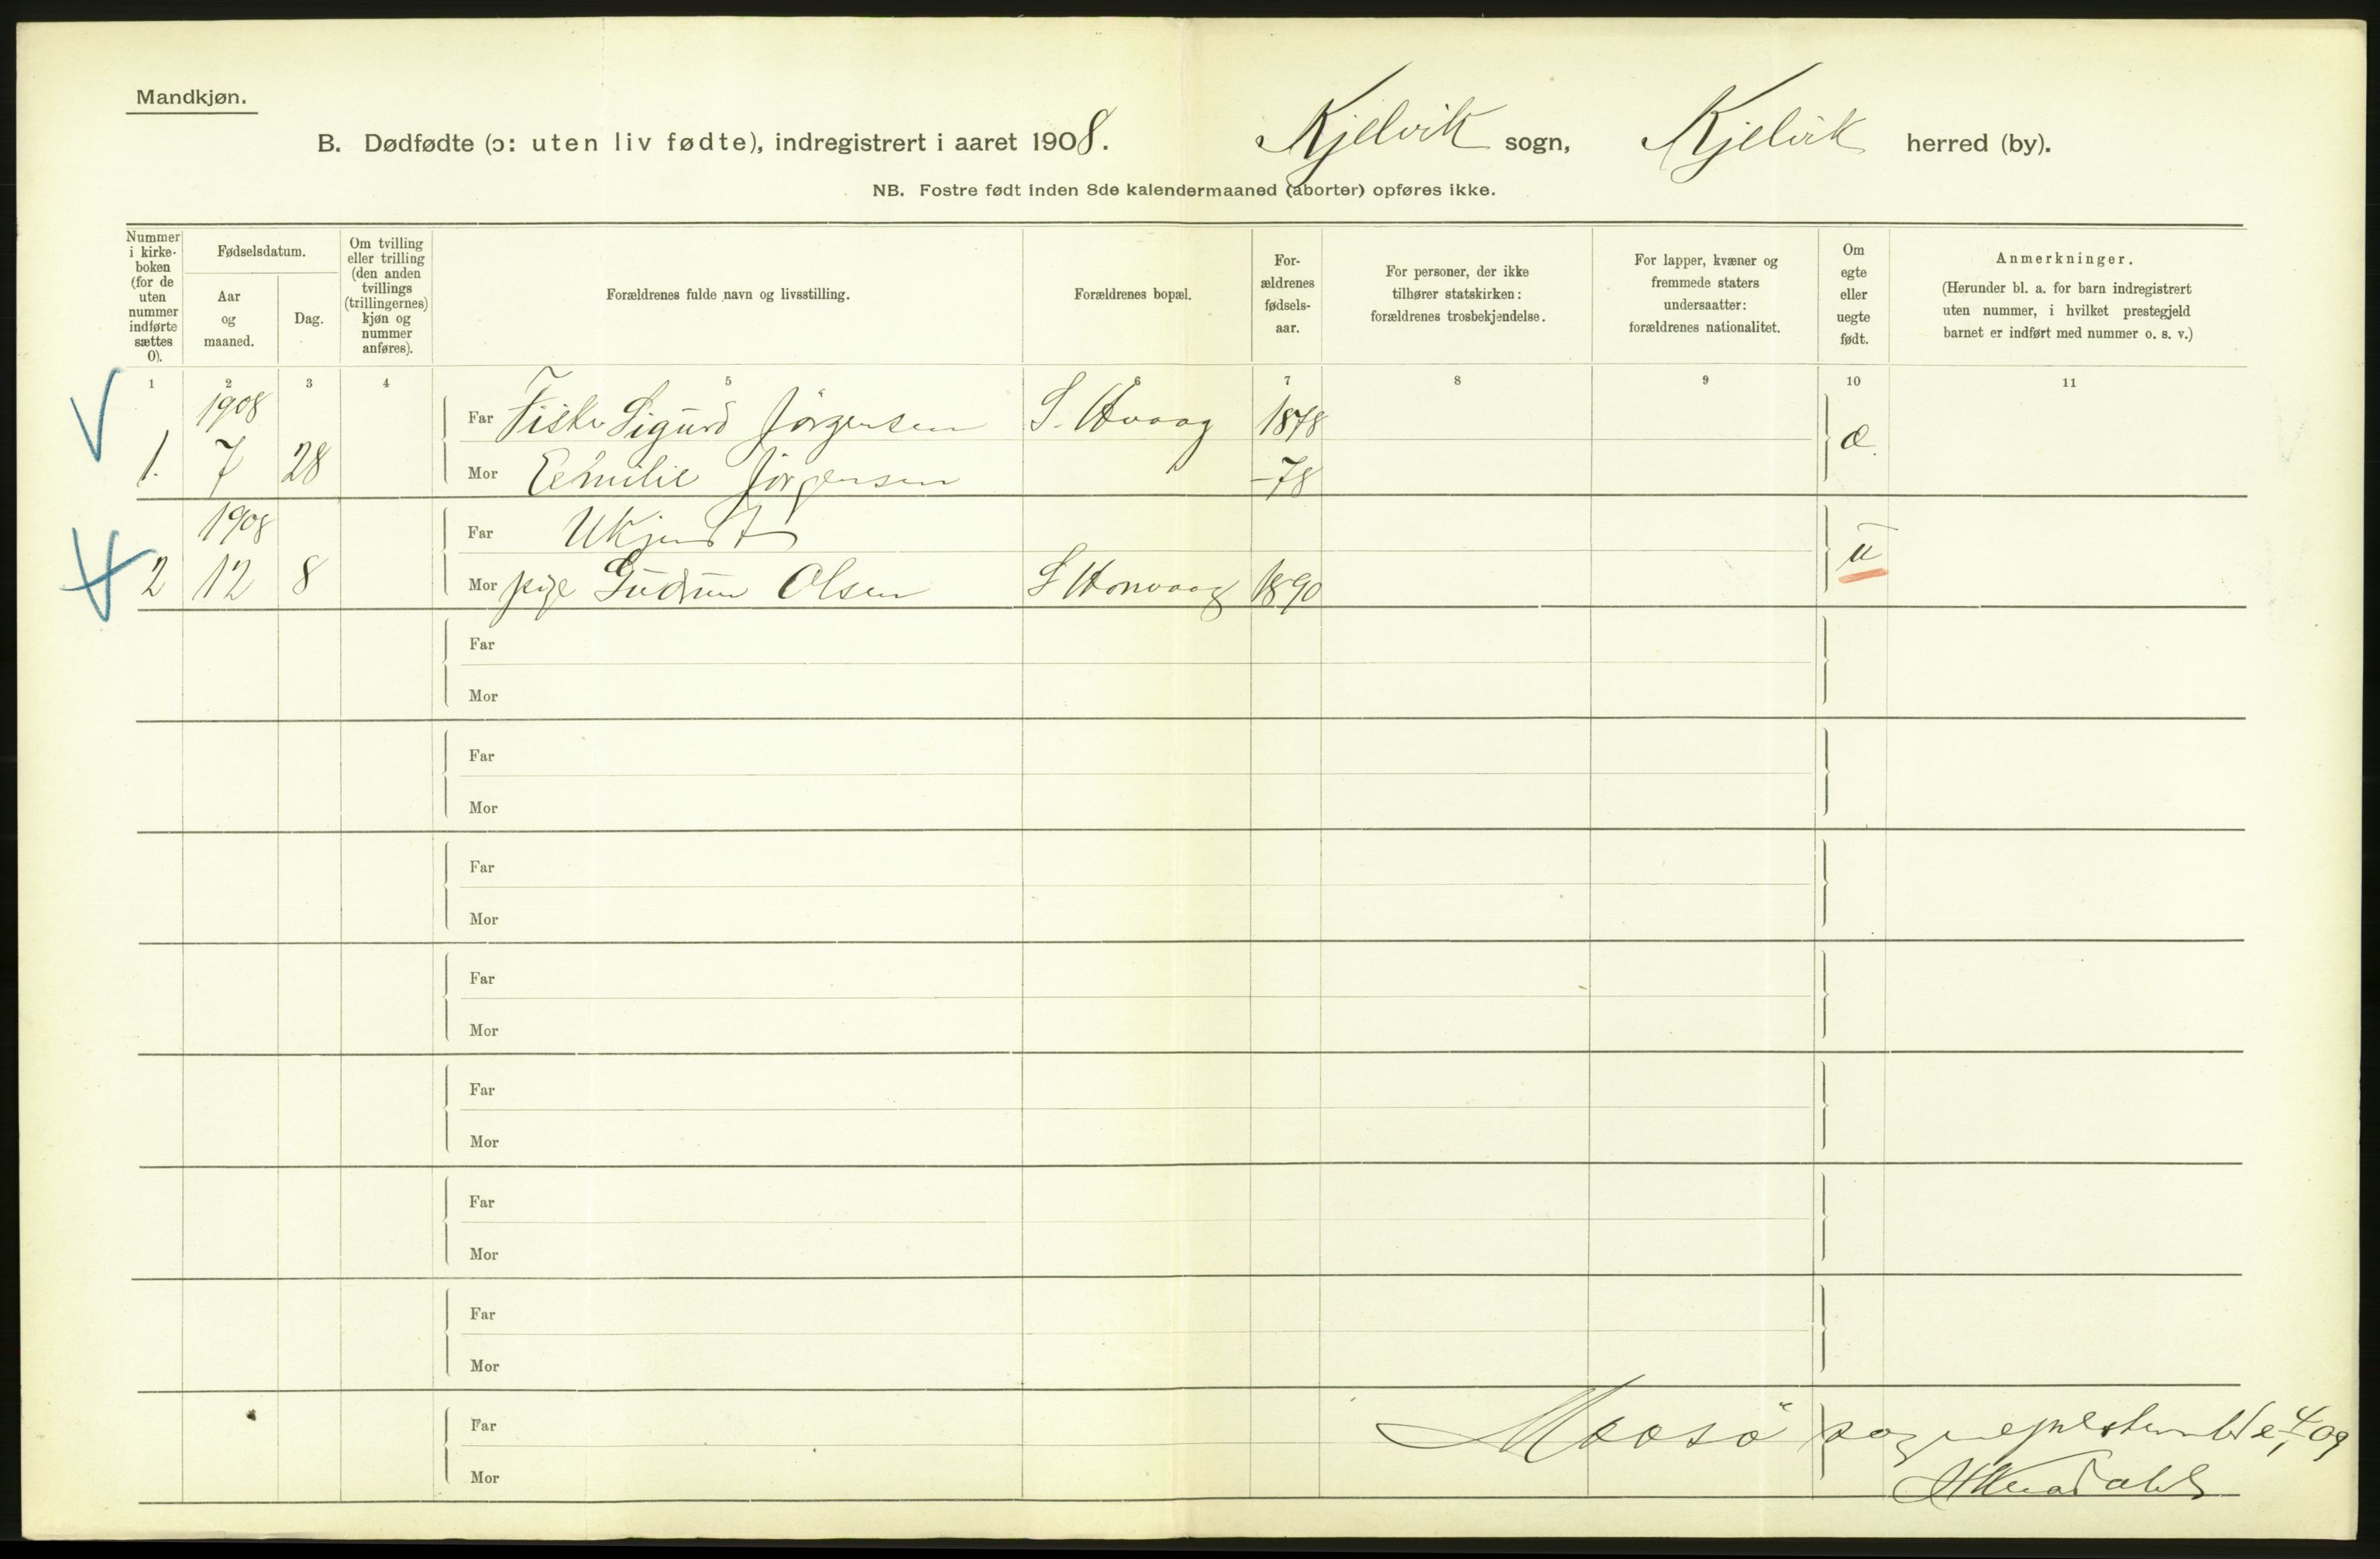 Mandkjøn.
B. Dødfødte (ɔ: uten liv fødte), indregistrert i aaret 1908. Kjelvik sogn, Kjelvik herred (by).
NB. Fostre født inden 8de kalendermaaned (aborter) opføres ikke.
Nummer i kirke-boken (for de uten nummer indførte sættes 0).
Fødselsdatum.
Aar og maaned.
Dag.
Om tvilling eller trilling (den anden tvillings (trillingernes) kjøn og nummer anføres).
Forældrenes fulde navn og livsstilling.
Forældrenes bopæl.
For-ældrenes fødsels-aar.
For personer, der ikke tilhører statskirken: forældrenes trosbekjendelse.
For lapper, kvæner og fremmede staters undersaatter: forældrenes nationalitet.
Om egte eller uegte født.
Anmerkninger.
(Herunder bl. a. for barn indregistrert uten nummer, i hvilket prestegjeld barnet er indført med nummer o. s. v.)
1 2 3 4 5 6 7 8 9 10 11
1908
Far Fisker Sigurd Jörgensen S. Hvaag 1878
1. 7 28 Mor Eemilie Jörgensen -78 æ.
1908
Far Ukjendt
2 12 8 Mor pige Gudrun Olsen S Honvaag 1890 u
Far
Mor
Far
Mor
Far
Mor
Far
Mor
Far
Mor
Far
Mor
Far
Mor
Far
Mor
Maasö 09